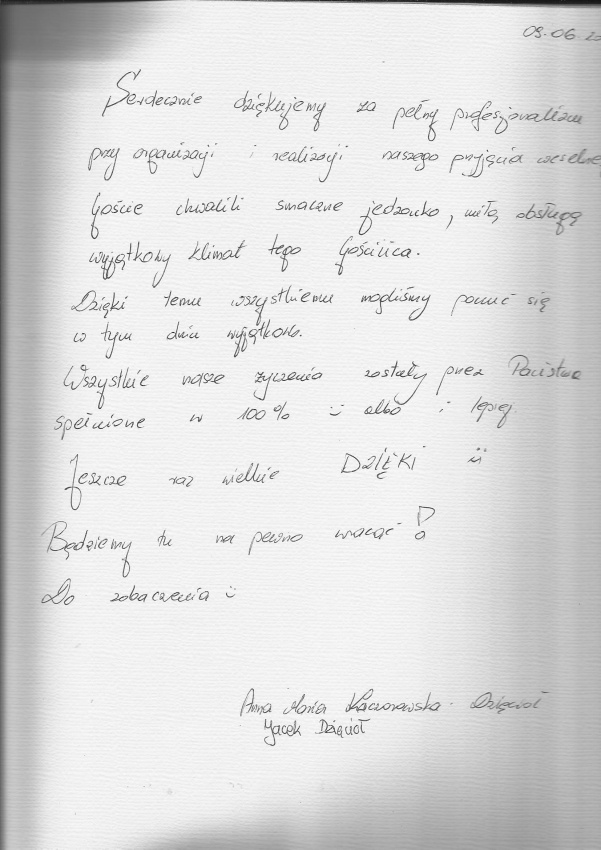 09.06.20
Serdecznie dziękujemy za pełny profesjonalizm
przy organizacji i realizacji naszego przyjęcia weselne
Goście chwalili smaczne jedzonko, miłą obsługę
wyjątkowy klimat tego Gościńca.
Dzięki temu wszystkiemu mogliśmy poczuć się
w tym dniu wyjątkowo.
Wszystkie nasze życzenia zostały przez Państwa
spełnione w 100% :) albo i lepiej.
Jeszcze raz wielkie DZIĘKI :)
Będziemy tu na pewno wracać!
Do zobaczenia :)
Anna Maria Kaczorowska - Dzięcioł
Jacek Dzięcioł